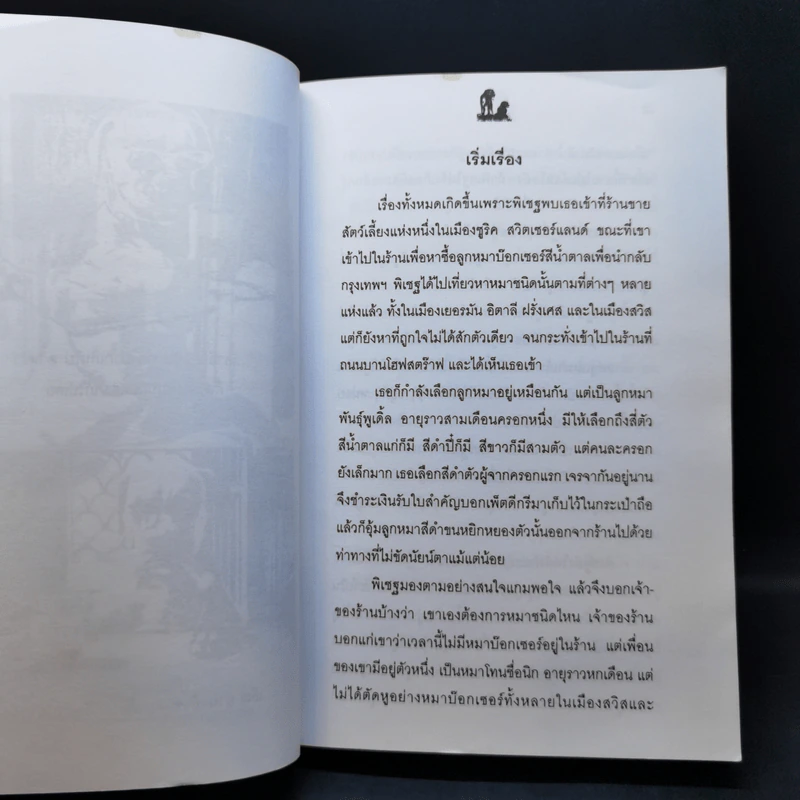 เริ่มเรื่อง
เรื่องทั้งหมดเกิดขึ้นเพราะพิเชฐพบเธอเข้าที่ร้านขาย
สัตว์เลี้ยงแห่งหนึ่งในเมืองซูริค สวิตเซอร์แลนด์ ขณะที่เขา
เข้าไปในร้านเพื่อหาซื้อลูกหมาบ๊อกเซอร์สีน้ำตาลเพื่อนำกลับ
กรุงเทพฯ พิเชฐได้ไปเที่ยวหาหมาชนิดนั้นตามที่ต่างๆ หลาย
แห่งแล้ว ทั้งในเมืองเยอรมัน อิตาลี ฝรั่งเศส และในเมืองสวิส
แต่ก็ยังหาที่ถูกใจไม่ได้สักตัวเดียว จนกระทั่งเข้าไปในร้านที่
ถนนบานโฮฟสตร๊าฟ และได้เห็นเธอเข้า
เธอก็กำลังเลือกลูกหมาอยู่เหมือนกัน แต่เป็นลูกหมา
พันธุ์พูเดิ้ล อายุราวสามเดือนครอกหนึ่ง มีให้เลือกถึงสี่ตัว
สีน้ำตาลแก่ก็มี สีดำปี๋ก็มี สีขาวก็มีสามตัว แต่คนละครอก
ยังเล็กมาก เธอเลือกสีดำตัวผู้จากครอกแรก เจรจากันอยู่นาน
จึงชำระเงินรับใบสำคัญบอกเพ็ตดีกรีมาเก็บไว้ในกระเป๋าถือ
แล้วก็อุ้มลูกหมาสีดำขนหยิกหยองตัวนั้นออกจากร้านไปด้วย
ท่าทางที่ไม่ขัดนัยน์ตาแม้แต่น้อย
พิเชฐมองตามอย่างสนใจแกมพอใจ แล้วจึงบอกเจ้า-
ของร้านบ้างว่า เขาเองต้องการหมาชนิดไหน เจ้าของร้าน
บอกแก่เขาว่าเวลานี้ไม่มีหมาบ๊อกเซอร์อยู่ในร้าน แต่เพื่อน
ของเขามีอยู่ตัวหนึ่ง เป็นหมาโทนชื่อนิก อายุราวหกเดือน แต่
ไม่ได้ตัดหูอย่างหมาบ๊อกเซอร์ทั้งหลายในเมืองสวิสและ